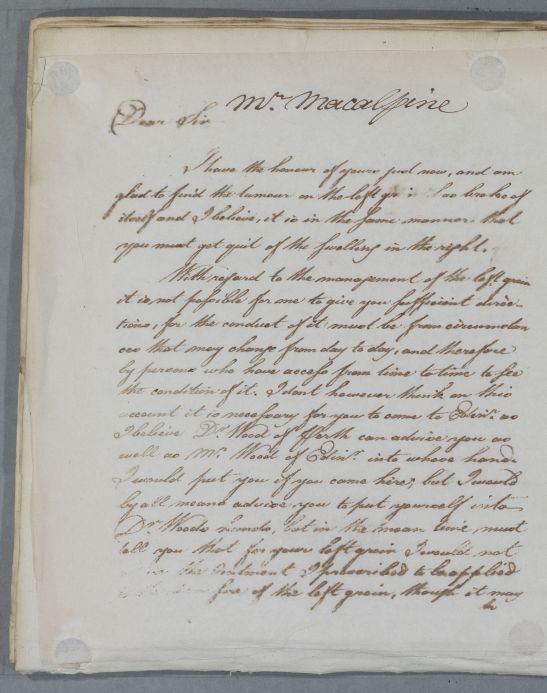 Mr. Macalpine
Dear Sir
I have the honour of yours just now, and am
glad to find the tumour in the left groin has broke of
itself and I believe, it is in the same manner that
you must get quit of the swelling in the right.
With regard to the management of the left groin
it is not possible for me to give you sufficient direc-
tions, for the conduct of it must be from circumstan
ces that may change from day to day, and therefore
by persons who have access from time to time to see
the condition of it. I dont however think on this
account it is necessary for you to come to Edinr. as
I believe Dr. Wood of Perth can advise you as
well as Mr. Wood of Edinr. into whose hands
I would put you if you came here, but I would
by all means advise you to put yourself into
Dr. Woods hands, but in the mean time, must
tell you that for your left groin I would not
the Ointment I prescribed to be applied
of the left groin, though it may
be